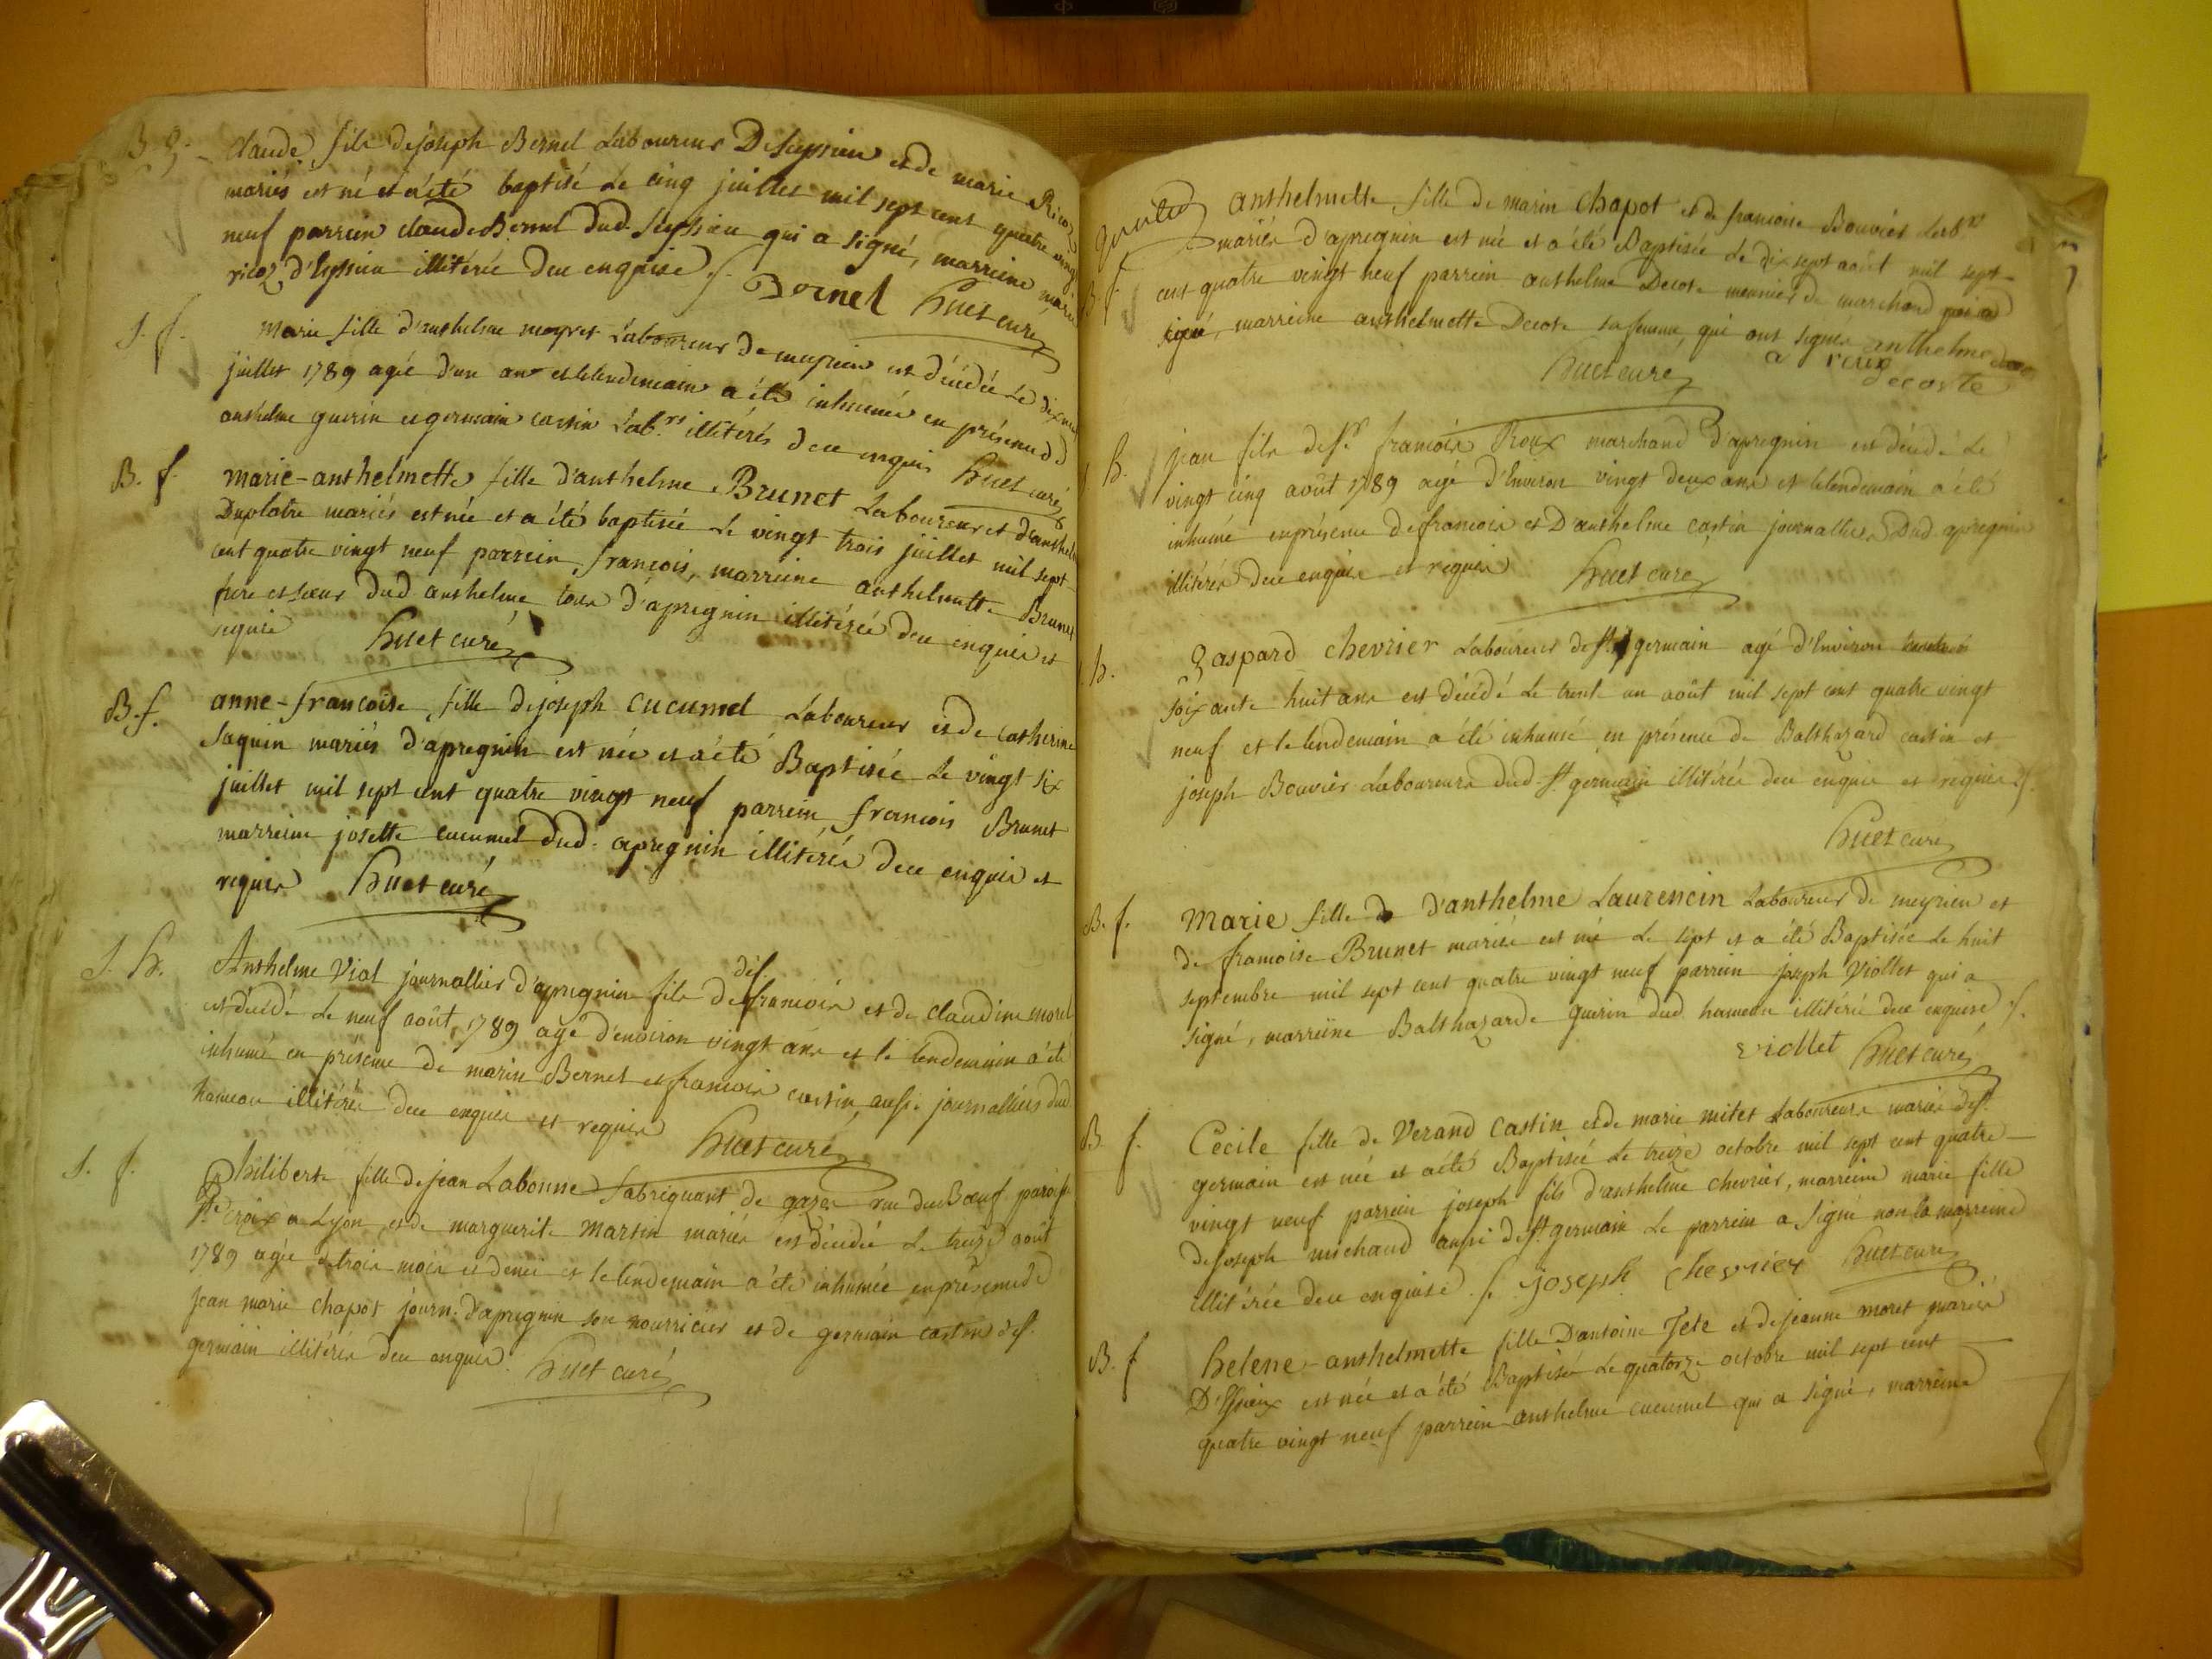 B. g. claude fils de joseph Bernel Laboureur D'essieu et de marie Ricoz
mariés est né et a été baptisé Le cinq juillet mil sept cent quatre vingt
neuf parrein claude Bernel dud. qui a signé, marreine marie
ricoz illitérée de ce enquise ./. Bornel huet curé
S. f. marie fille d'anthelme meyret Laboureur de meyrieu est décédée Le dix neuf
juillet 1789 agée d'un an et le lendemain a été inhumée en présence d
anthelme guerin et germain castin Lab.rs illitérés de ce enquis huet curé
B. f. marie-anthelmette fille d'anthelme Brunet Laboureur et d'anthel
Duplatre mariés est née et a été baptisée Le vingt trois juillet mil sept
cent quatre vingt neuf parrein francois, marreine anthelmette Brunet
frere et soeur dud anthelme tous d'apregnin illitérés de ce enquis et
requis huet curé
B. f. anne-francoise fille de joseph cucumel Laboureur et de catherine
Saquin mariés d'apregnin est née et a été Baptisée Le vingt six
juillet mil sept cent quatre vingt neuf parrein francois Brunet
marreine josette cucumel dud. apregnin illitérés de ce enquis et
requis huet curé
S. h. Anthelme Vial journallier d'apregnin fils de déf. francois et de claudine morel
est décédé Le neuf août 1789 agé d'environ vingt ans et le lendemain a été
inhumé en présence de marin Bernet et francois castin aussi journalliers dud
hameau illitérés de ce enquis et requis huet curé
S. f. Philiberte fille de jean Labonne fabriquant de gazes rue du Boeuf paroisse
Ste croix a Lyon et de marguerite martin mariés est décédée Le treize août
1789 agée de trois mois et demi et le lendemain a été inhumée en présence de
jean marie chapot journ. d'apregnin son nourricier et de germain castin de st.
germain illitérés de ce enquis. huet curé
B. f. anthelmette fille de marin chapot et de francoise Bouvier Lab.rs
mariés d'apregnin est née et a été Baptisée Le dix sept août mil sept
cent quatre vingt neuf parrein anthelme Decoste meunier de marchand qui a
signé, marreine anthelmette Decoste sa femme, qui ont signés anthelme
a roux decoste
huet curé
h. jean fils de sr. francois Roux marchand d'apregnin est décédé Le
vingt cinq août 1789 agé d'Environ vingt deux ans et le lendemain a été
inhumé en présence de francois et D'anthelme castin journalliers Dud. apregnin
illitérés de ce enquis et requis huet curé
h. gaspard chevrier Laboureur de st. germain agé d'Environ
soixante huit ans est décédé Le trente un août mil sept cent quatre vingt
neuf et le lendemain a été inhumé en présence de Balthazard castin et
joseph Bouvier Laboureurs dud st. germain illitérés de ce enquis et requis ./.
huet curé
B. f. Marie fille d'anthelme Laurencin Laboureur de meyrieu et
de francoise Brunet mariés est née Le sept et a été Baptisée Le huit
septembre mil sept cent quatre vingt neuf parrein joseph Viollet qui a
signé, marreine Balthazarde guerin dud hameau illitérée de ce enquise ./.
viollet huet curé
B f. Cécile fille de Verand Castin et de marie mitet Laboureurs mariés de st.
germain est née et a été Baptisée Le treize octobre mil sept cent quatre
vingt neuf parrein joseph fils d'anthelme chevrier, marreine marie fille
de joseph michaud aussi de st germain Le parrein a signé non la marreine
illitérée de ce enquise ./. joseph chevrier huet curé
B. f helene-anthelmette fille D'antoine Jete et de jeanne moret mariés
D'Essieux est née et a été Baptisée Le quatorze octobre mil sept cent
quatre vingt neuf parrein anthelme cucumel qui a signé, marreine